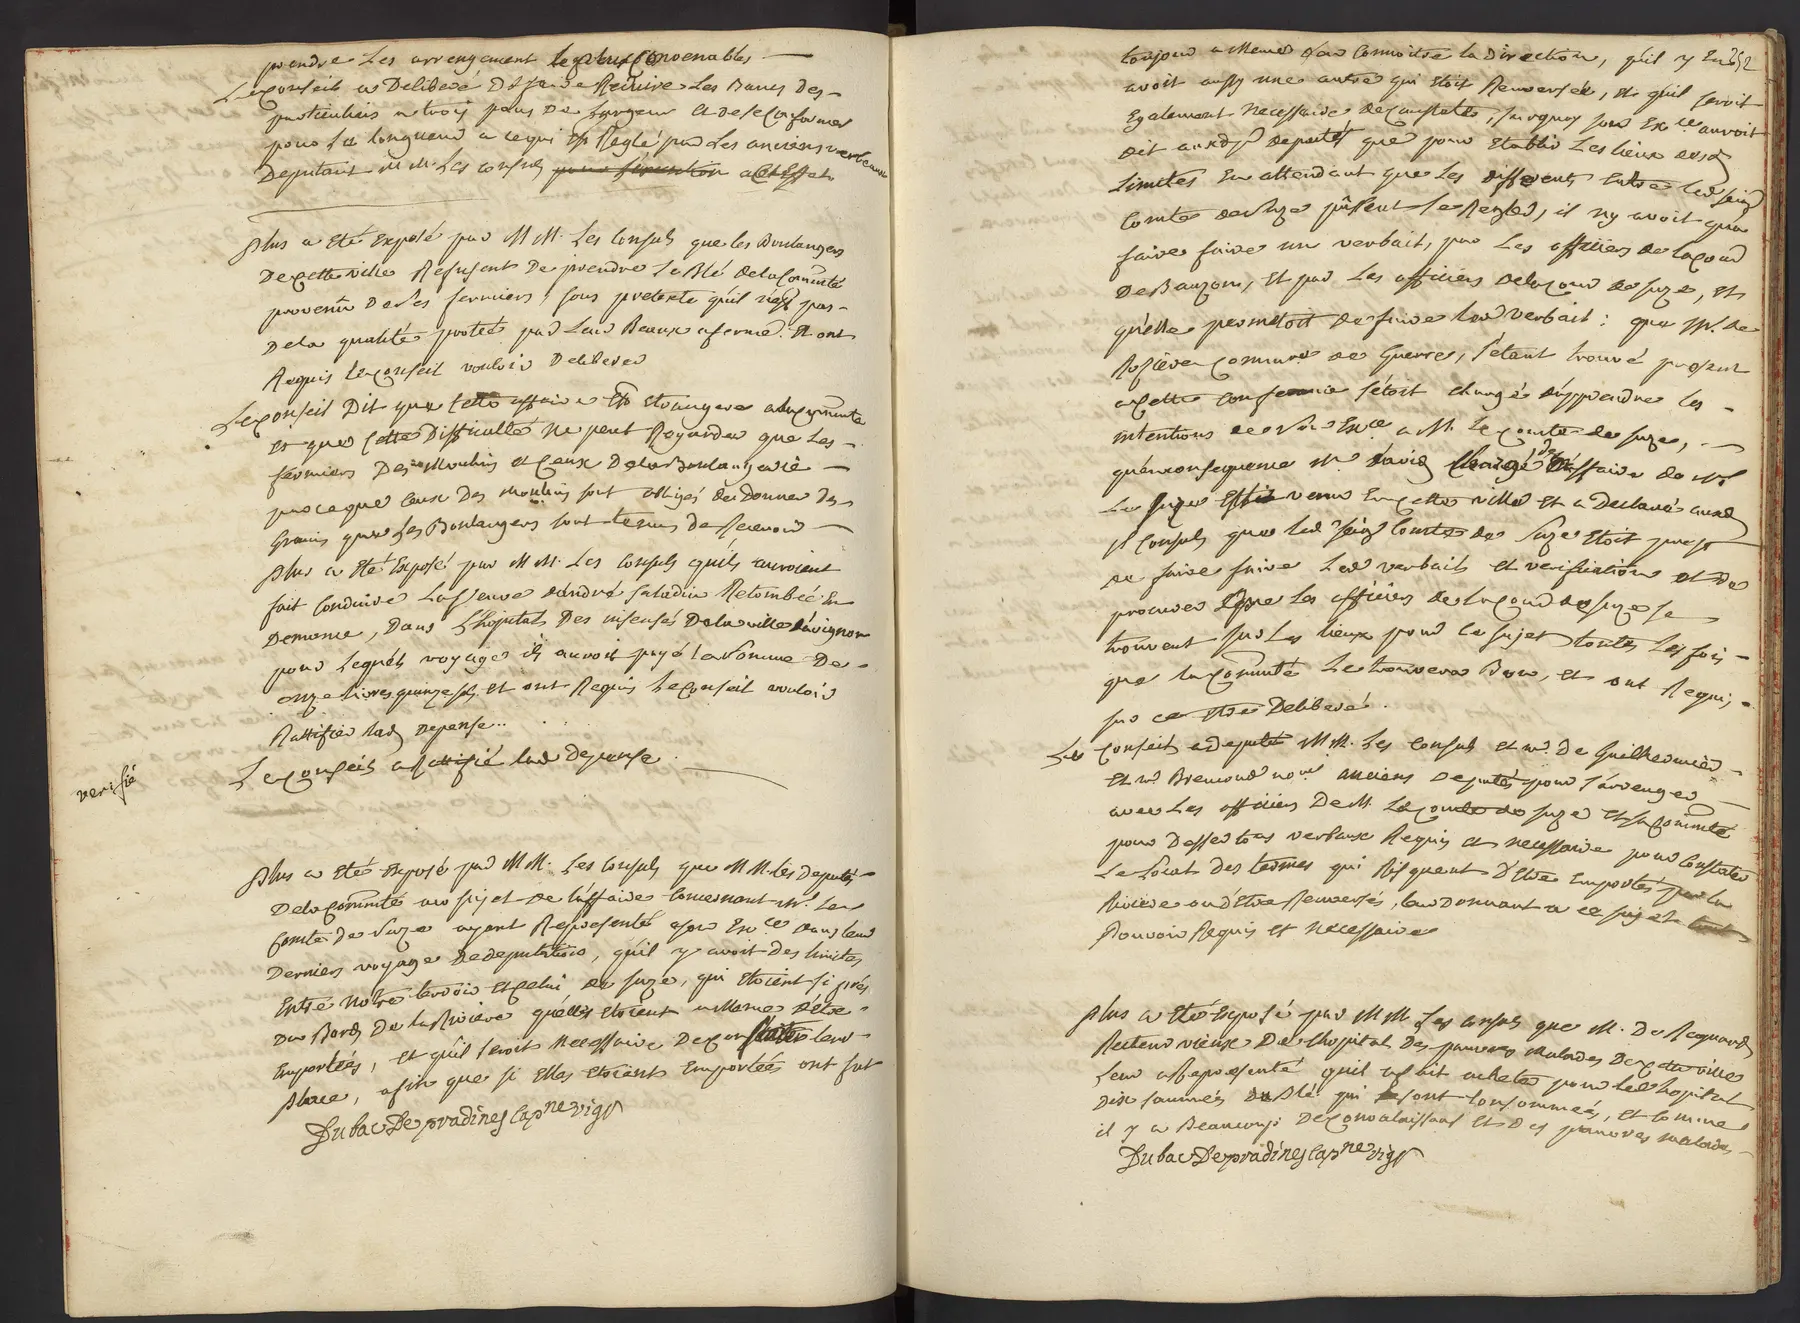 prendre les arrengement les plus convenables
Le conseil a Deliberé De faire Reduire les Bancs des
particuliers a trois pans De Largeur et de se conformer
pour La longueur a ce qui est Reglé par Les anciens verbeaux
Deputant MM. Les consuls pour a cet effet
Plus a Eté Exposé par MM. Les Consuls que les Boulangers
De cette ville Refusent De prendre Le Blé de la Comunté
provenû De Ses fermiers, sous pretexte qu'il n'est pas
De la qualité portée par Leur Beaux a ferme. Et ont
Requis le conseil vouloir Deliberer
Le conseil Dit que cette affaire Est Etrangere a la communté
et que cette Difficulté Ne peut Regarder que les
fermiers Des Moulins et ceux De la Boulangerie
parce que ceux Des Moulins sont obligés de donner Des
Grains que Les Boulangers sont tenus de Recevoir
Plus a Eté Exposé par MM. Les Consuls qu'ils auroient
fait Conduire La veuve d'andré Saladin Retombée En
Demence, Dans L'hôpital Des insensés De la ville d'avignon
pour Lequel voyage ils auroit payé la Somme De
onze livres quinze sols et ont Requis Le conseil vouloir
Rattifier lad Depense
Le conseil a Rattifié lad Depense
verifié
Plus a Eté Exposé par MM. Les Consuls que MM. les Deputés
De la Communté au sujet de l'affaire Concernant Mr. Le
Comte De Suze ayant Representé a son Exce dans leur
Derniers voyage De deputation, qu'il y avoit des limites
Entre Nôtre terroir et celui de Suze, qui Etoient si prés
Du Bord De la Riviere qu'elles Etoient a Meme d'être
Emportées, et qu'il seroit Necessaire De constater leur
place, afin que si Elles Etoient Emportées ont fut
Dubac De pradines Capne vigr
652
toujour a Meme d'en Connoitre la Direction, qu'il y En
avoit aussy une autre qui Etoit Renversée, et qu'il seroit
Egalement Necessaire de Constater, surquoy son Exce auroit
dit auxd. srs deputés que pour Etablir Les lieux desd
Limites En attendant que Les differents Entre led seigr
Comte de Suze pussent se Regler, il n'y avoit qu'a
faire faire un verbail, par Les officiers de la cour
De Bauzon, et par Les officiers de la cour de Suze, et
qu'elle permettoit de faire led verbail: que Mr. de
Rosiere Commre de Guerre, s'étant trouvé present
a cette Conference s'étoit chargé d'apprendre les
intentions de Son Exce a M. Le comte de Suze,
qu'en consequence Mr. david Chargé des affaire de Mr
De Suze Est venu En cette ville et a Declaré auxd
srs Consuls que led seigr Comte de Suze Etoit prest
de faire faire Led verbail et verification et de
procurer que Les officiers de la cour de Suze se
trouvent sur Les Lieux pour ce sujet toutes Les fois
que la communté Le trouvera Bon, et ont Requis
sur ce Etre Deliberé.
Le Conseil a deputé MM. Les Consuls et Mr. De Guilhermier
et Mr Bremond nore anciens Deputés pour s'arrenger
avec Les officiers De M. Le comte de Suze et la Communté
pour Dresser tous verbaux Requis et necessaire pour Constater
Le Local des termes qui Risquent D'Etre Emportés par la
Riviere ou d'Etre Renversés, leur Donnant a ce sujet tout
Pouvoir Requis et Necessaire
Plus a Eté Exposé par MM. Les Consuls que M. De Raymond
Recteur vieux De l'hopital Des pauvres Malades De cette ville
Leur a Representé qu'il a fait acheter pour led hopital
Dix saumées De Blé qui se sont Consommées, et comme
il y a Beaucoup De Convalaissans et Des pauvres malades
Dubac De pradines Capne vigr